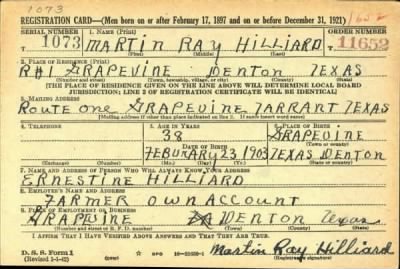 1073
REGISTRATION CARD—(Men born on or after February 17, 1897 and on or before December 31, 1921)
SERIAL NUMBER 1. NAME (Print) ORDER NUMBER
1073 MARTIN RAY HILLIARD 11652
(First) (Middle) (Last)
2. PLACE OF RESIDENCE (Print)
R#1 GRAPEVINE DENTON TEXAS
(Number and street) (Town, township, village, or city) (County) (State)
[THE PLACE OF RESIDENCE GIVEN ON THE LINE ABOVE WILL DETERMINE LOCAL BOARD
JURISDICTION; LINE 2 OF REGISTRATION CERTIFICATE WILL BE IDENTICAL]
3. MAILING ADDRESS
ROUTE ONE GRAPEVINE TARRANT TEXAS
[Mailing address if other than place indicated on line 2. If same insert word same]
4. TELEPHONE 5. AGE IN YEARS 6. PLACE OF BIRTH
38 GRAPEVINE
DATE OF BIRTH (Town or county)
FEBUNARY 23 1903 TEXAS DENTON
(Exchange) (Number) (Mo.) (Day) (Yr.) (State or country)
7. NAME AND ADDRESS OF PERSON WHO WILL ALWAYS KNOW YOUR ADDRESS
ERNESTINE HILLIARD
8. EMPLOYER'S NAME AND ADDRESS
FARMER OWN ACCOUNT
9. PLACE OF EMPLOYMENT OR BUSINESS
GRAPVINE DENTON Texas
(Number and street or R. F. D. number) (Town) (County) (State)
I AFFIRM THAT I HAVE VERIFIED ABOVE ANSWERS AND THAT THEY ARE TRUE.
D. S. S. Form 1
(Revised 1-1-42) GPO 16-21630-1 Martin Ray Hilliard
(Registrant's signature)